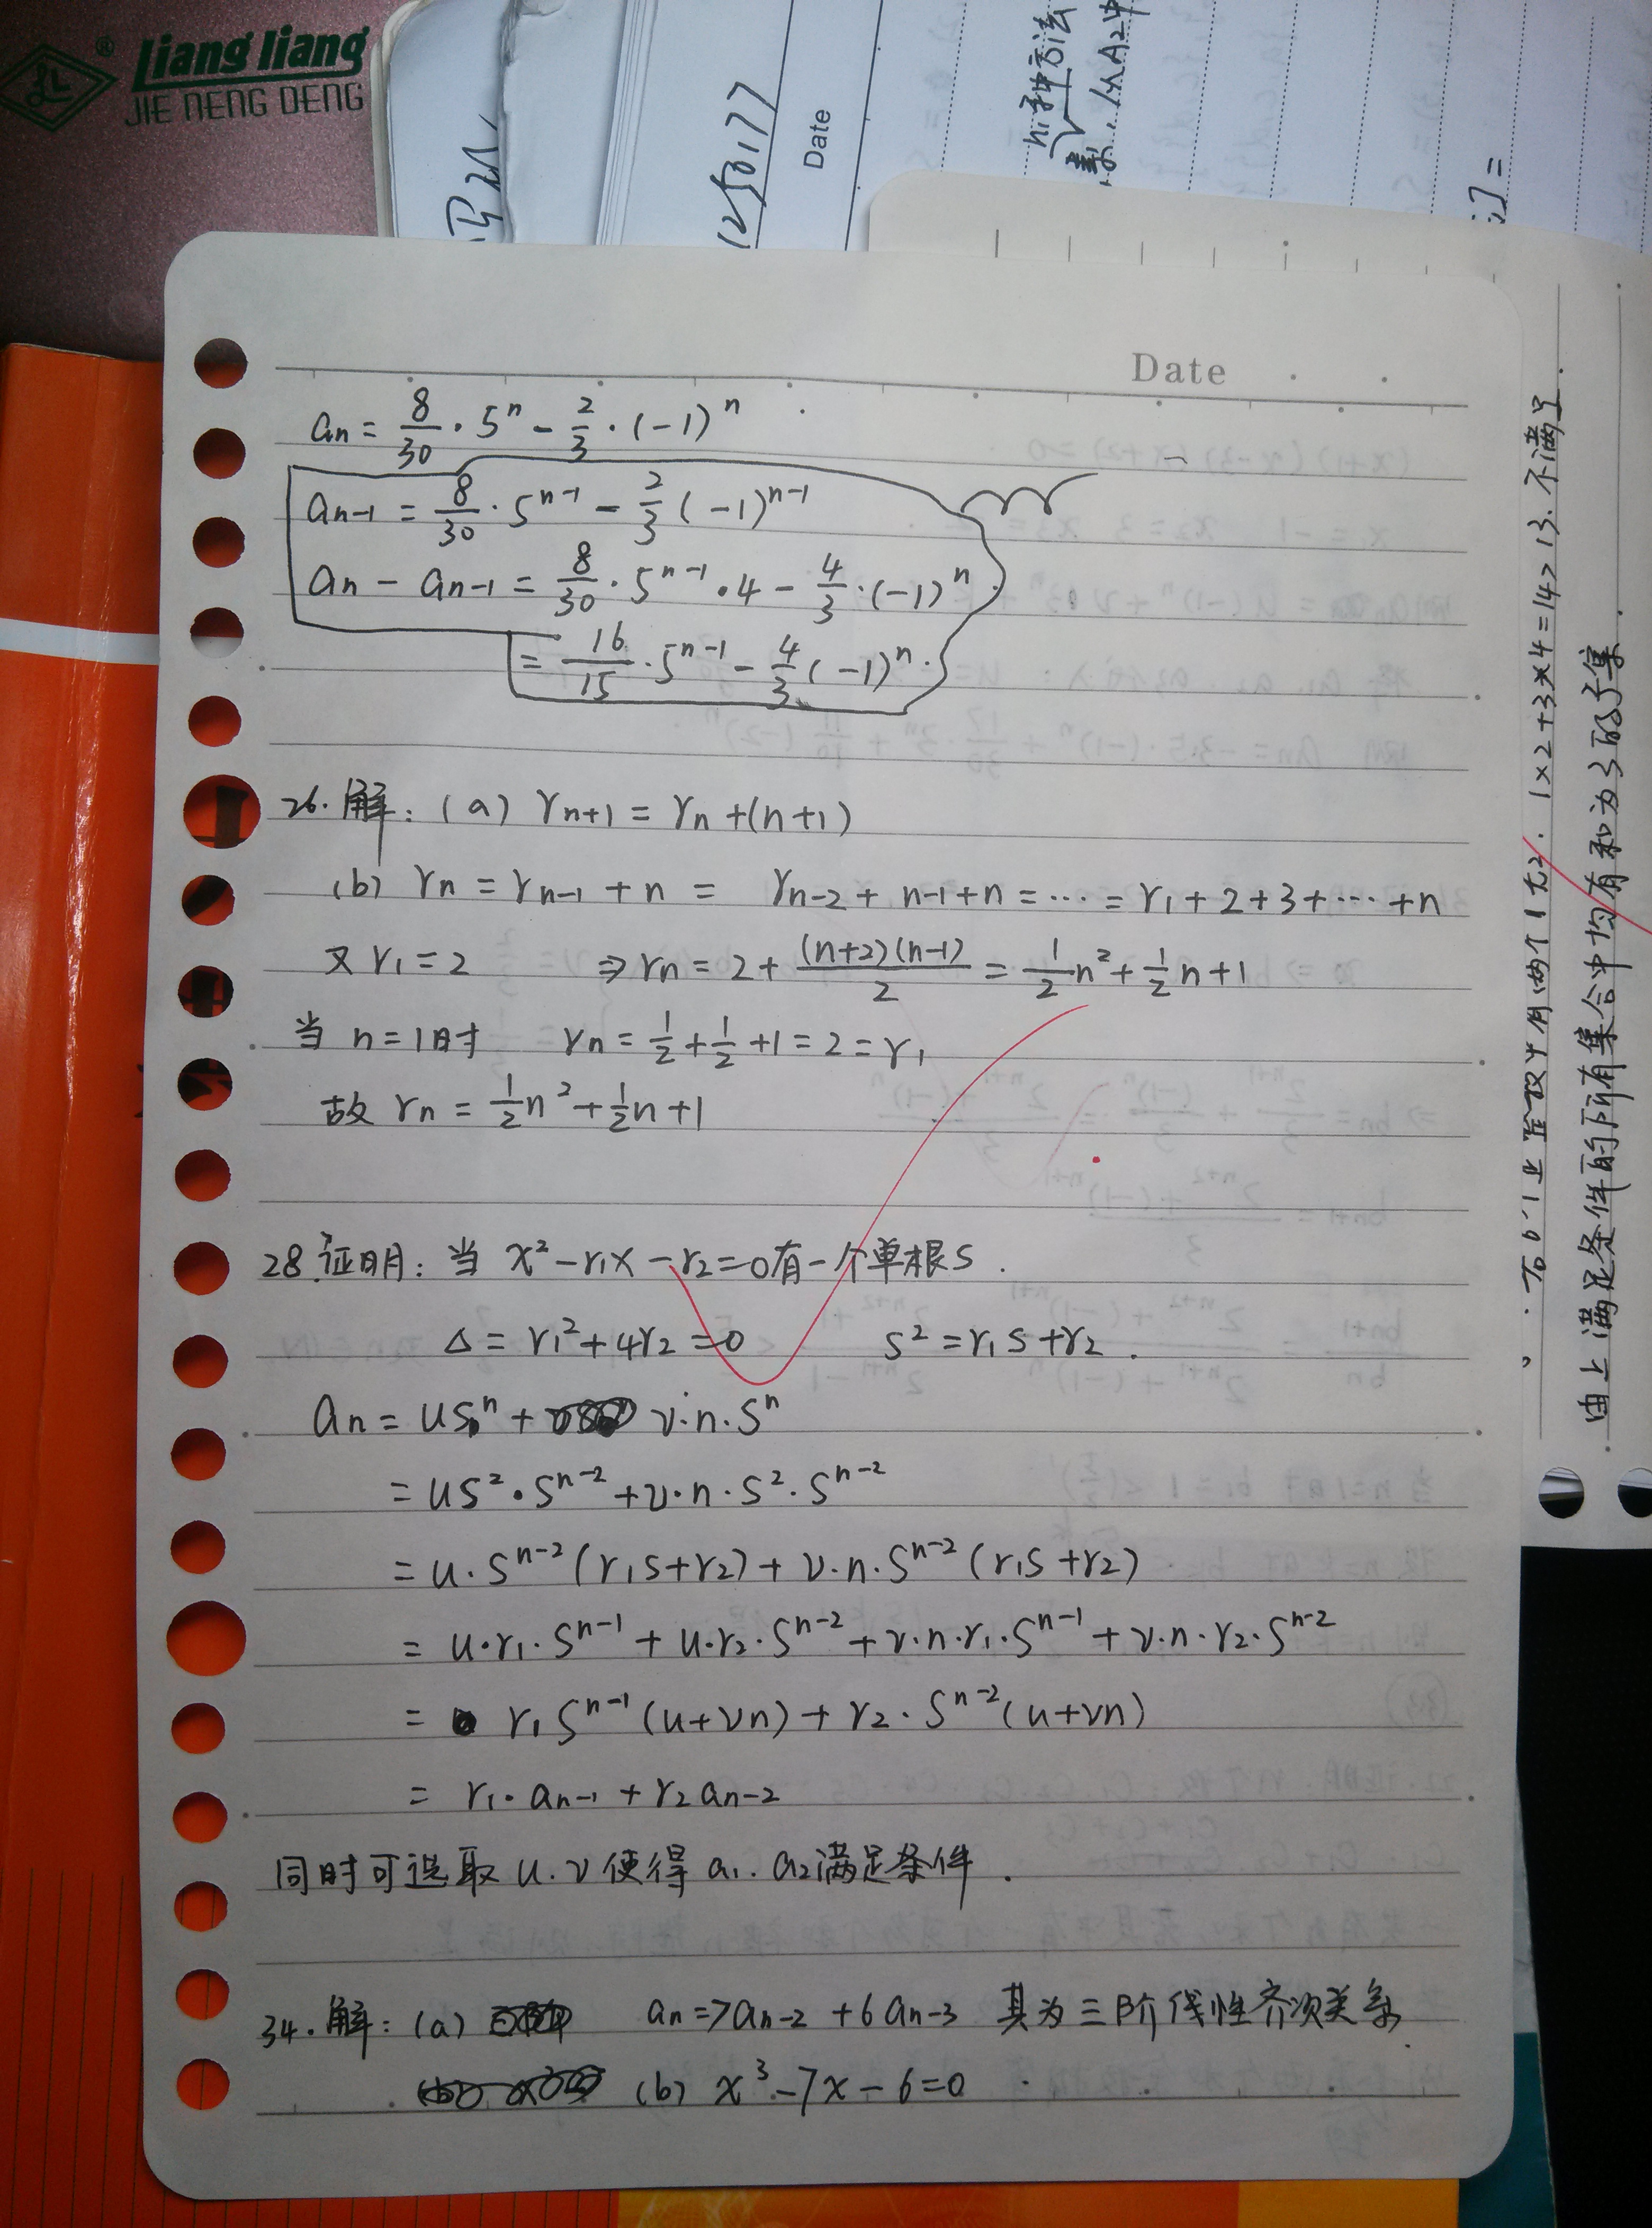 Liang liang ®
JIE NENG DENG
(2501)
Date
n₁种方法
Date
aₙ = 8/30 · 5ⁿ - 2/3 · (-1)ⁿ
aₙ₋₁ = 8/30 · 5ⁿ⁻¹ - 2/3 (-1)ⁿ⁻¹
aₙ - aₙ₋₁ = 8/30 · 5ⁿ⁻¹ · 4 - 4/3 · (-1)ⁿ
= 16/15 · 5ⁿ⁻¹ - 4/3 (-1)ⁿ.
26. 解: (a) rₙ₊₁ = rₙ + (n+1)
(b) rₙ = rₙ₋₁ + n = rₙ₋₂ + n-1 + n = ⋯ = r₁ + 2 + 3 + ⋯ + n
又 r₁ = 2 ⇒ rₙ = 2 + (n+2)(n-1)/2 = 1/2 n² + 1/2 n + 1
当 n = 1时 rₙ = 1/2 + 1/2 + 1 = 2 = r₁
故 rₙ = 1/2 n² + 1/2 n + 1
28. 证明: 当 x² - r₁x - r₂ = 0有一个单根s.
Δ = r₁² + 4r₂ = 0 s² = r₁s + r₂.
aₙ = usⁿ + v·n·sⁿ
= us²·sⁿ⁻² + v·n·s²·sⁿ⁻²
= u·sⁿ⁻²(r₁s+r₂) + v·n·sⁿ⁻²(r₁s+r₂)
= u·r₁·sⁿ⁻¹ + u·r₂·sⁿ⁻² + v·n·r₁·sⁿ⁻¹ + v·n·r₂·sⁿ⁻²
= r₁sⁿ⁻¹(u+vn) + r₂·sⁿ⁻²(u+vn)
= r₁·aₙ₋₁ + r₂aₙ₋₂
同时可选取 u.v使得 a₁. a₂满足条件.
34. 解: (a) aₙ = 7aₙ₋₂ + 6aₙ₋₃ 其为三阶线性齐次关系.
(b) x³ - 7x - 6 = 0
1×2+3×4=14>13.不满足.
由上满足条件的所有集合中均有和为3的子集